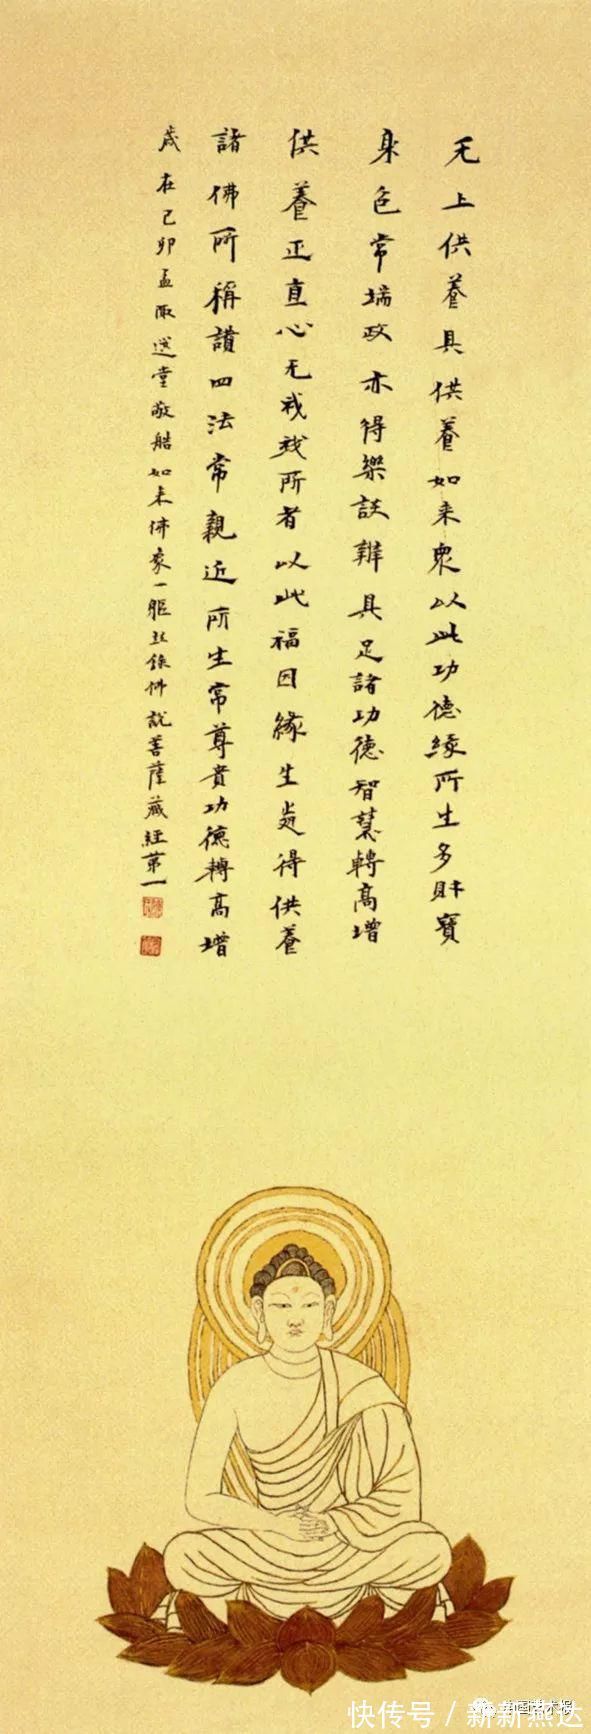 无上供養具供養如来衆以此功德緣所生多財寶
身色常端政亦得樂說辯具足諸功德智慧轉高增
供養正直心无我我所者以此福因緣生處得供養
諸佛所稱讃四法常親近所生常尊貴功德轉高增
歲在己卯孟陬選堂敬艁如来佛象一軀並錄佛說菩薩藏經第一
中国艺术报
快传号 / 新新燕达